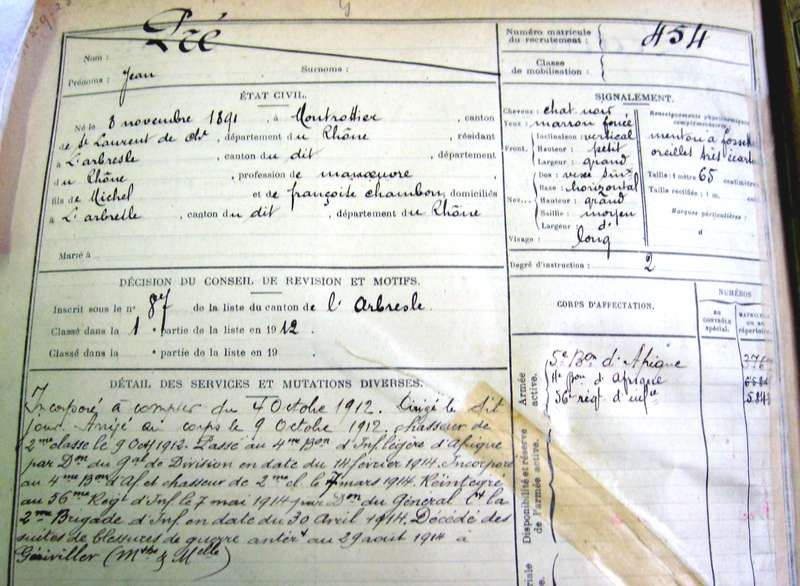 Nom : Pré
Prénoms : Jean Surnoms :
Numéro matricule du recrutement : 454
Classe de mobilisation :
ÉTAT CIVIL.
Né le 8 novembre 1891, à Montrottier, canton
de St Laurent de Ch, département du Rhône, résidant
à L'arbresle, canton du dit, département
du Rhône, profession de manœuvre
fils de Michel et de françoise chambon, domiciliés
à L'arbresle, canton du dit, département du Rhône
Marié à
SIGNALEMENT.
Cheveux : chat noir
Yeux : marron foncé
Front. Inclinaison : vertical
Hauteur : petit
Largeur : grand
Nez. Dos :
Base : horizontal
Hauteur : grand
Saillie : moyen
Largeur : d°
Visage : long
Renseignements physionomiques complémentaires :
menton à fosset
oreilles très écart
Taille : 1 mètre 65 centimètres
Taille rectifiée : 1 m. cent
Marques particulières :
Degré d'instruction : 2
DÉCISION DU CONSEIL DE REVISION ET MOTIFS.
Inscrit sous le n° 87 de la liste du canton de l'Arbresle.
Classé dans la 1e partie de la liste en 1912.
Classé dans la partie de la liste en 19
CORPS D'AFFECTATION.
NUMÉROS
AU CONTRÔLE spécial.
MATRICULE OU AU répertoire
Armée active.
5e Bon d'Afrique
4e Bon d'Afrique
56 rég. d'infie
Disponibilité et réserve de l'armée active.
DÉTAIL DES SERVICES ET MUTATIONS DIVERSES.
Incorporé à compter du 4 Octobre 1912. Dirigé le dit
jour. Arrivé au corps le 9 Octobre 1912. chasseur de
2me classe le 9 Oct 1912. Passé au 4me Bon d'Inf. légère d'Afrique
par Don du Gal de Division en date du 14 février 1914. Incorporé
au 4me Bon d'Af et chasseur de 2me cl. le 7 mars 1914. Réintégré
au 56me Régt d'Inf. le 7 mai 1914 par Don du Général Ct la
2me Brigade d'Inf. en date du 30 Avril 1914. Décédé des
suites de blessures de guerre antért au 29 août 1914 à
Geriviller (Mthe & Melle)